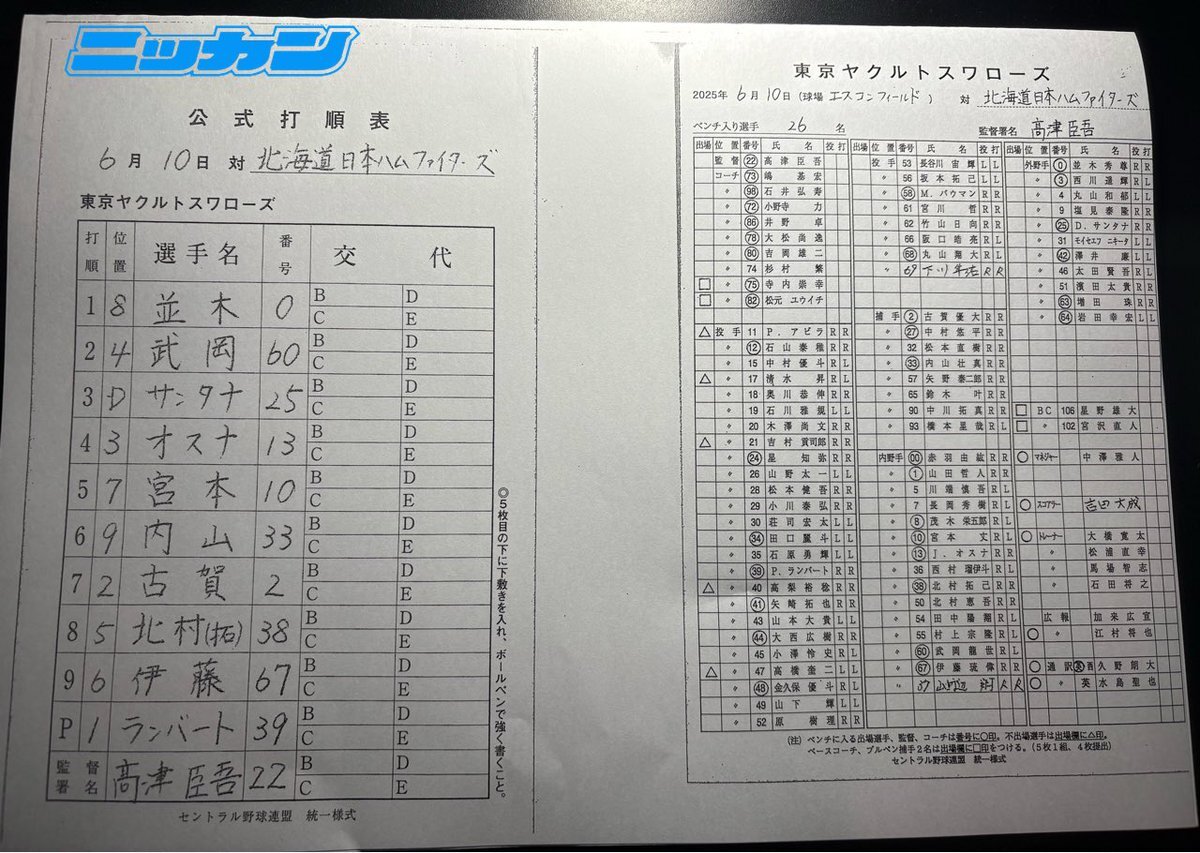 ニッカン
公式打順表
6月10日 対 北海道日本ハムファイターズ
東京ヤクルトスワローズ
打順 位置 選手名 番号 交代
1 8 並木 0 B D
C E
2 4 武岡 60 B D
C E
3 D サンタナ 25 B D
C E
4 3 オスナ 13 B D
C E
5 7 宮本 10 B D
C E
6 9 内山 33 B D
C E
7 2 古賀 2 B D
C E
8 5 北村(拓) 38 B D
C E
9 6 伊藤 67 B D
C E
P 1 ランバート 39 B D
C E
監督署名 高津臣吾 22 B D
C E
セントラル野球連盟 統一様式
◎5枚目の下に下敷きを入れ、ボールペンで強く書くこと。
東京ヤクルトスワローズ
2025年 6月10日(球場 エスコンフィールド) 対 北海道日本ハムファイターズ
ベンチ入り選手 26名 監督署名 高津臣吾
出場 位置 番号 氏名 投 打
監督 22 高津臣吾
コーチ 73 嶋基宏
〃 98 石井弘寿
〃 72 小野寺力
〃 86 井野卓
〃 78 大松尚逸
〃 80 吉岡雄二
〃 74 杉村繁
□ 〃 75 寺内崇幸
□ 〃 82 松元ユウイチ
△ 投手 11 P.アビラ R R
〃 12 石山泰稚 R R
〃 15 中村優斗 R L
△ 〃 17 清水昇 R L
〃 18 奥川恭伸 R R
〃 19 石川雅規 L L
〃 20 木澤尚文 R R
△ 〃 21 吉村貢司郎 R R
〃 24 星知弥 R R
〃 26 山野太一 L L
〃 28 松本健吾 R R
〃 29 小川泰弘 R R
〃 30 荘司宏太 L L
〃 34 田口麗斗 L L
〃 35 石原勇輝 L L
〃 39 P.ランバート R R
△ 〃 40 高梨裕稔 R R
〃 41 矢崎拓也 R R
〃 43 山本大貴 L L
〃 44 大西広樹 R R
〃 45 小澤怜史 R L
△ 〃 47 高橋奎二 L L
〃 48 金久保優斗 R L
〃 49 山下輝 L L
〃 52 原樹理 R R
出場 位置 番号 氏名 投 打
投手 53 長谷川宙輝 L L
〃 56 坂本拓己 L L
〃 58 M.バウマン R R
〃 61 宮川哲 R R
〃 62 竹山日向 R R
〃 66 阪口皓亮 R L
〃 68 丸山翔大 R L
〃 69 下川隼佑 R R
捕手 2 古賀優大 R R
〃 27 中村悠平 R R
〃 32 松本直樹 R R
〃 33 内山壮真 R R
〃 57 矢野泰二郎 R R
〃 65 鈴木叶 R R
〃 90 中川拓真 R R
〃 93 橋本星哉 R L
内野手 00 赤羽由紘 R R
〃 1 山田哲人 R R
〃 5 川端慎吾 R L
〃 7 長岡秀樹 R L
〃 8 茂木栄五郎 R L
〃 10 宮本丈 R L
〃 13 J.オスナ R R
〃 36 西村瑠伊斗 R L
〃 38 北村拓己 R R
〃 50 北村恵吾 R R
〃 54 田中陽翔 R L
〃 55 村上宗隆 R L
〃 60 武岡龍世 R L
〃 67 伊藤琉偉 R R
〃 37 山野辺翔 R R
出場 位置 番号 氏名 投 打
外野手 0 並木秀尊 R R
〃 3 西川遥輝 R L
〃 4 丸山和郁 L L
〃 9 塩見泰隆 R R
〃 25 D.サンタナ R R
〃 31 モイセエフ ニキータ L L
〃 42 澤井廉 L L
〃 46 太田賢吾 R L
〃 51 濱田太貴 R R
〃 63 増田珠 R R
〃 64 岩田幸宏 L L
□ BC 106 星野雄大
□ 〃 102 宮沢直人
○ マネジャー 中澤雅人
○ スコアラー 吉田大成
○ トレーナー 大橋寛太
〃 松浦直幸
〃 馬場智志
〃 石田将之
広報 加来広宣
○ 〃 江村将也
○ 通訳 英 西久野朗大
○ 〃 英 水島聖也
(注) ベンチに入る出場選手、監督、コーチは番号に○印。不出場選手は出場欄に△印。
ベースコーチ、ブルペン捕手2名は出場欄に□印をつける。(5枚1組、4枚提出)
セントラル野球連盟 統一様式